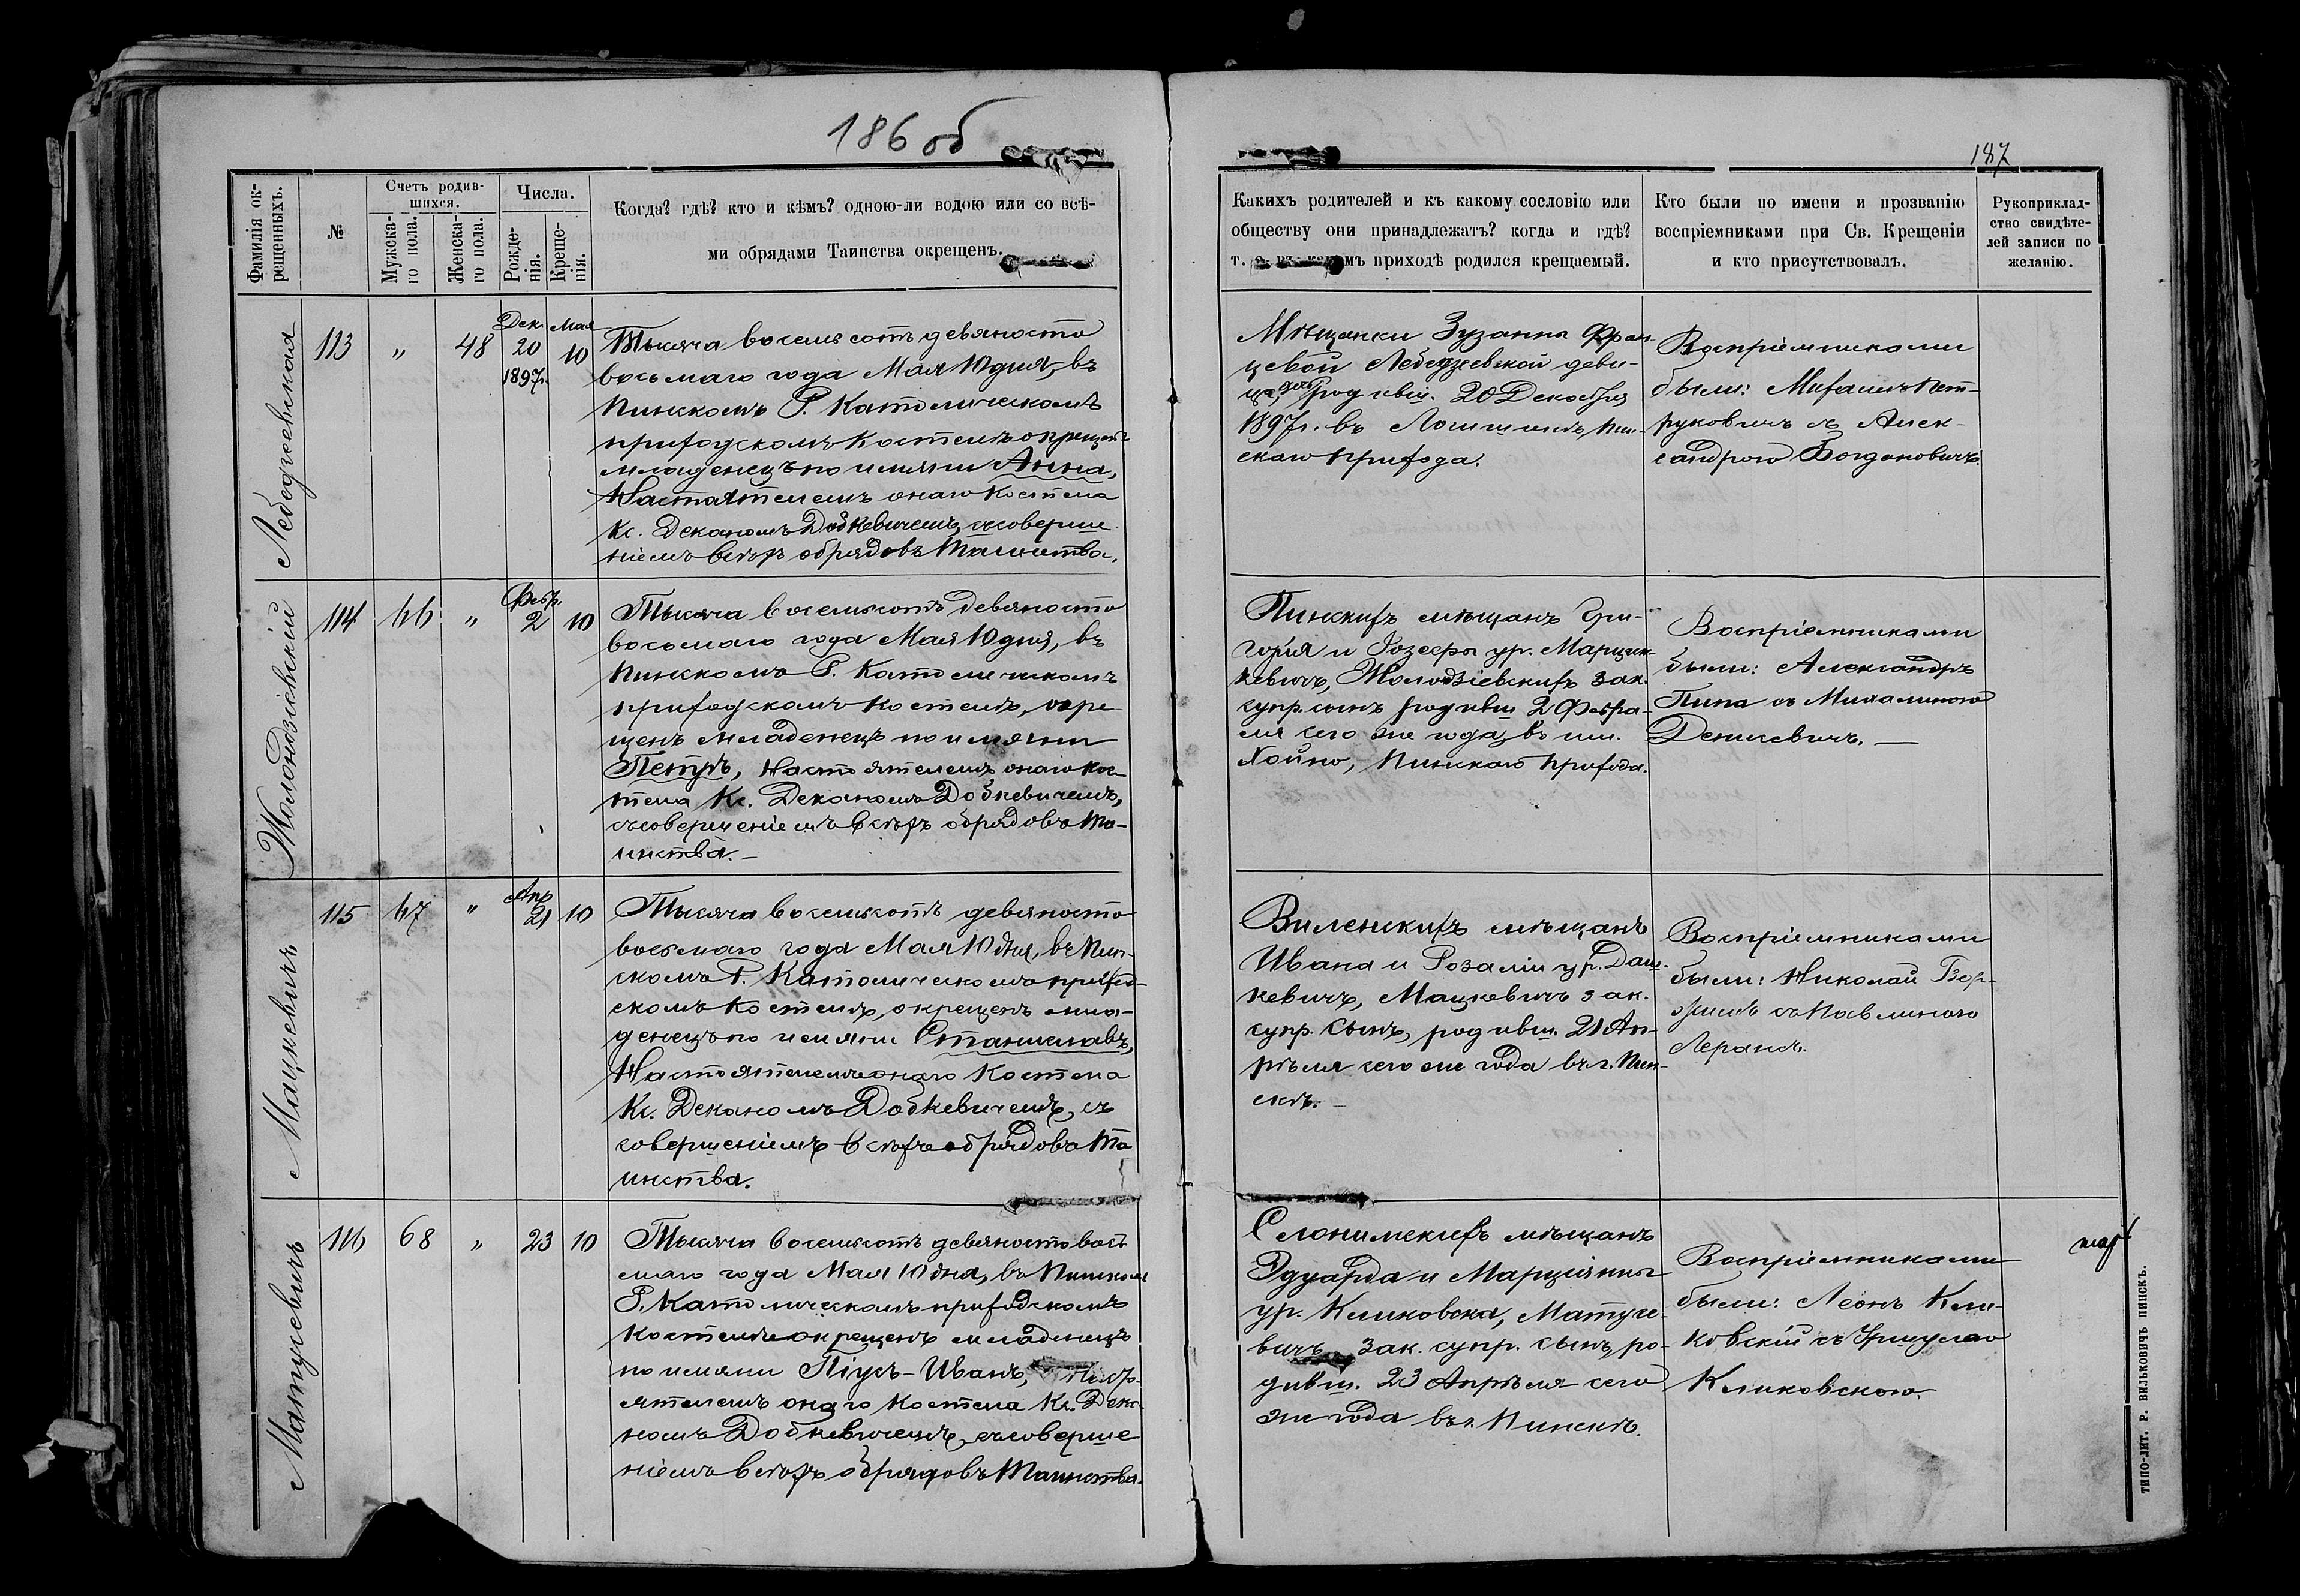 186 об
Фамилія ок-
рещенныхъ.
№
Счетъ родив-
шихся.
Мужска-
го пола.
Женска-
го пола.
Числа.
Рожде-
нія.
Креще-
нія.
Когда? гдѣ? кто и кѣмъ? одною-ли водою или со всѣ-
ми обрядами Таинства окрещенъ.
Лебедзевская
113 " 48
Дек. 20 1897г.
Мая 10
Тысяча восемьсотъ девяносто
восьмаго года Мая 10 дня, въ
Пинскомъ Р. Католическомъ
приходскомъ костелѣ окрещенъ
младенецъ по имяни Анна,
Настоятелемъ онаго костела
Кс. Деканомъ Добкевичемъ, съ соверше
ніемъ всѣхъ обрядовъ Таинства.
114
"
Февр.
2 10
Тысяча восемьсотъ девяносто
восьмаго года Мая 10 дня, въ
Пинскомъ Р. Католическомъ
приходскомъ костелѣ, окре-
щенъ младенецъ по имяни
Петръ, Настоятелемъ онаго кос-
тела Кс. Деканомъ Добкевичемъ,
съ совершеніемъ всѣхъ обрядовъ Та-
инства.—
Мацкевичъ
115
"
Апр.
21 10
Тысяча восемьсотъ девяносто
восьмаго года Мая 10 дня, въ Пин-
скомъ Р. Католическомъ приход-
скомъ костелѣ, окрещенъ мла-
денецъ по имяни Станиславъ,
Настоятелемъ онаго костела
Кс. Деканомъ Добкевичемъ, съ
совершеніемъ всѣхъ обрядовъ Та
инства.
Матусевичъ
116 68 " 23 10
Тысяча восемьсотъ девяносто вось
маго года Мая 10 дня, въ Пинском
Р. Католическомъ приходскомъ
костелѣ окрещенъ младенецъ
по имяни Піусъ-Иванъ, Насто-
ятелемъ онаго костела Кс. Дека
номъ Добкевичемъ, съ соверше
ніемъ всѣхъ обрядовъ Таинства.
187
Какихъ родителей и къ какому сословію или
обществу они принадлежатъ? когда и гдѣ?
т. е. въ какомъ приходѣ родился крещаемый.
Кто были по имени и прозванію
воспріемниками при Св. Крещеніи
и кто присутствовалъ.
Рукоприклад-
ство свидѣте-
лей записи по
желанію.
Мѣщанки Зузанны Фран-
цевой Лебедзевской деви-
цы, дочь родивш. 20 Декабря
1897г. въ Логишинѣ, Пин-
скаго прихода.
Воспріемниками
были: Михаилъ Пет-
руковичъ съ Алек-
сандрою Богдановичъ.
Пинскихъ мѣщанъ Гри-
горія и Іозефы ур. Марцин-
кевичъ, зак.
супр. сынъ родивш 2 Февра-
ля сего же года, въ им.
Хойно, Пинскаго прихода.
Воспріемниками
были: Александръ
съ Михалиною
Денисевичъ.—
Виленскихъ мѣщанъ
Ивана и Розаліи ур. Даш-
кевичъ, Мацкевичъ зак.
супр. сынъ, родивш. 21 Ап-
рѣля сего же года въ г. Пин-
скѣ.—
Воспріемниками
были: Николай
съ Павлиною
Слонимскихъ мѣщанъ
Эдуарда и Марціянны
ур. Климовска, Матусе-
вичъ, зак. супр. сынъ, ро-
дивш. 23 Апрѣля сего
же года въ г. Пинскѣ.
Воспріемниками
были: Леонъ Кли-
ковскій съ Уршулею
Климовскою.
ТИПО-ЛИТ. Р. ВИЛЬКОВИЧЪ ПИНСКЪ.